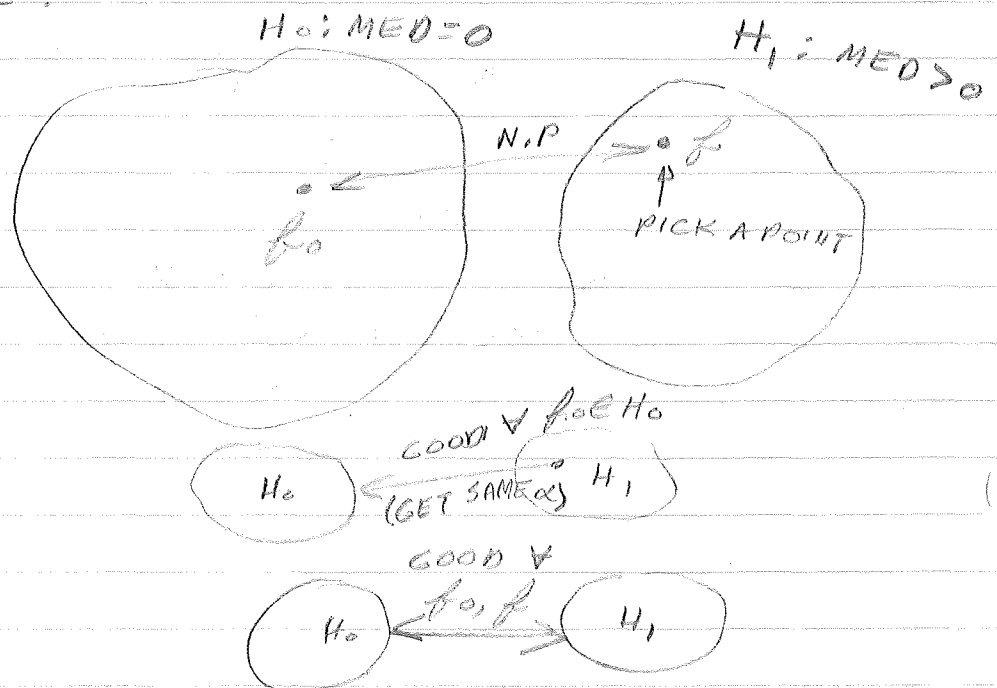 H₀: MED=0
H₁: MED>0
N.P
f₀
f
PICK A POINT
GOOD ∀ f₀∈H₀
H₀
(GET SAME α)
H₁
GOOD ∀
f₀, f
H₀
H₁